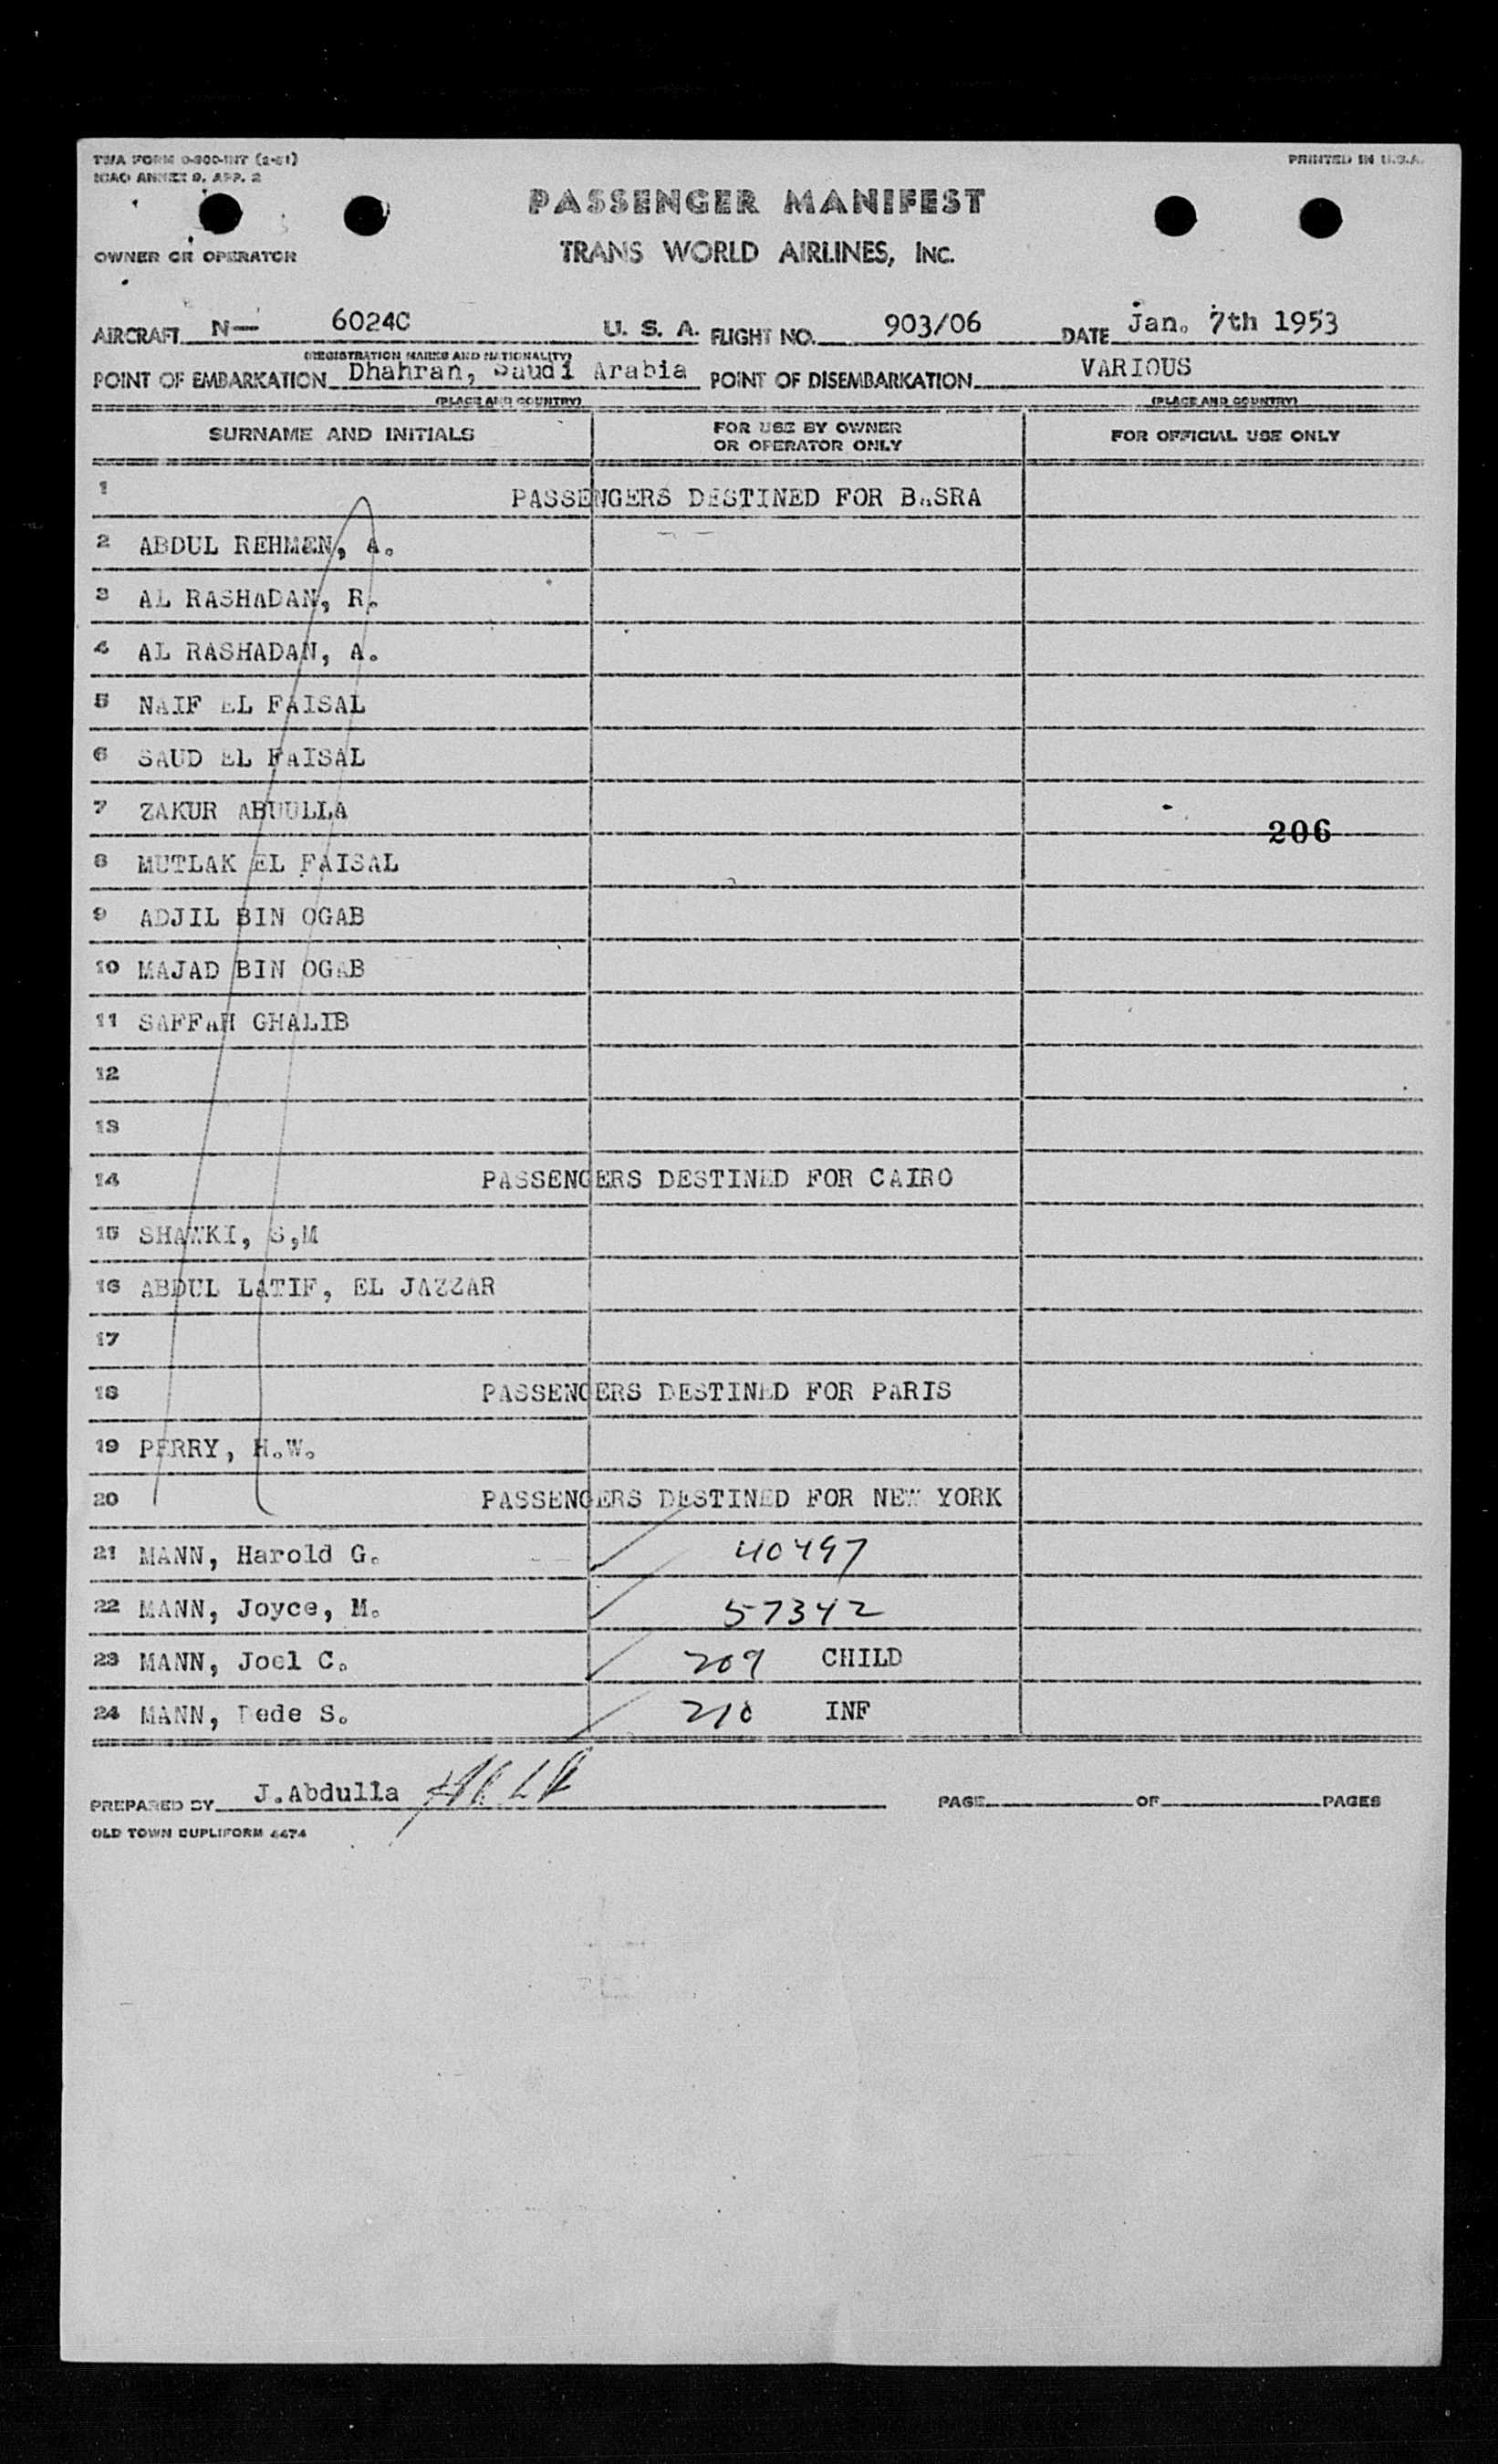 TWA FORM 0-300-INT (2-51)
PRINTED IN U.S.A.
ICAO ANNEX 9. APP. 2
PASSENGER MANIFEST
OWNER OR OPERATOR
TRANS WORLD AIRLINES, INC.
AIRCRAFT N— 6024C U. S. A. FLIGHT NO. 903/06 DATE Jan. 7th 1953
(REGISTRATION MARKS AND NATIONALITY)
POINT OF EMBARKATION Dhahran, Saudi Arabia POINT OF DISEMBARKATION VARIOUS
(PLACE AND COUNTRY) (PLACE AND COUNTRY)
SURNAME AND INITIALS FOR USE BY OWNER OR OPERATOR ONLY FOR OFFICIAL USE ONLY
1 PASSENGERS DESTINED FOR BASRA
2 ABDUL REHMEN, A.
3 AL RASHADAN, R.
4 AL RASHADAN, A.
5 NAIF EL FAISAL
6 SAUD EL FAISAL
7 ZAKUR ABUULLA
206
8 MUTLAK EL FAISAL
9 ADJIL BIN OGAB
10 MAJAD BIN OGAB
11 SAFFAH GHALIB
12
13
14 PASSENGERS DESTINED FOR CAIRO
15 SHAWKI, S,M
16 ABDUL LATIF, EL JAZZAR
17
18 PASSENGERS DESTINED FOR PARIS
19 PERRY, H.W.
20 PASSENGERS DESTINED FOR NEW YORK
21 MANN, Harold G. 40497
22 MANN, Joyce, M. 57342
23 MANN, Joel C. 209 CHILD
24 MANN, Dede S. 210 INF
PREPARED BY J.Abdulla PAGE OF PAGES
OLD TOWN DUPLIFORM 4474